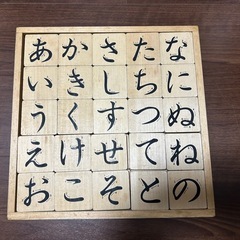 あかさたな
いきしちに
うくすつぬ
えけせてね
おこそとの